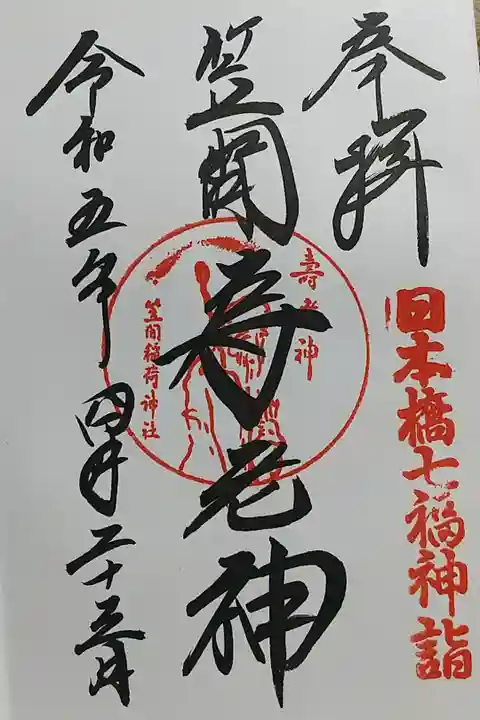 奉拝
日本橋七福神詣
笠間寿老神
壽老神
笠間稲荷神社
令和五年四月二十三日